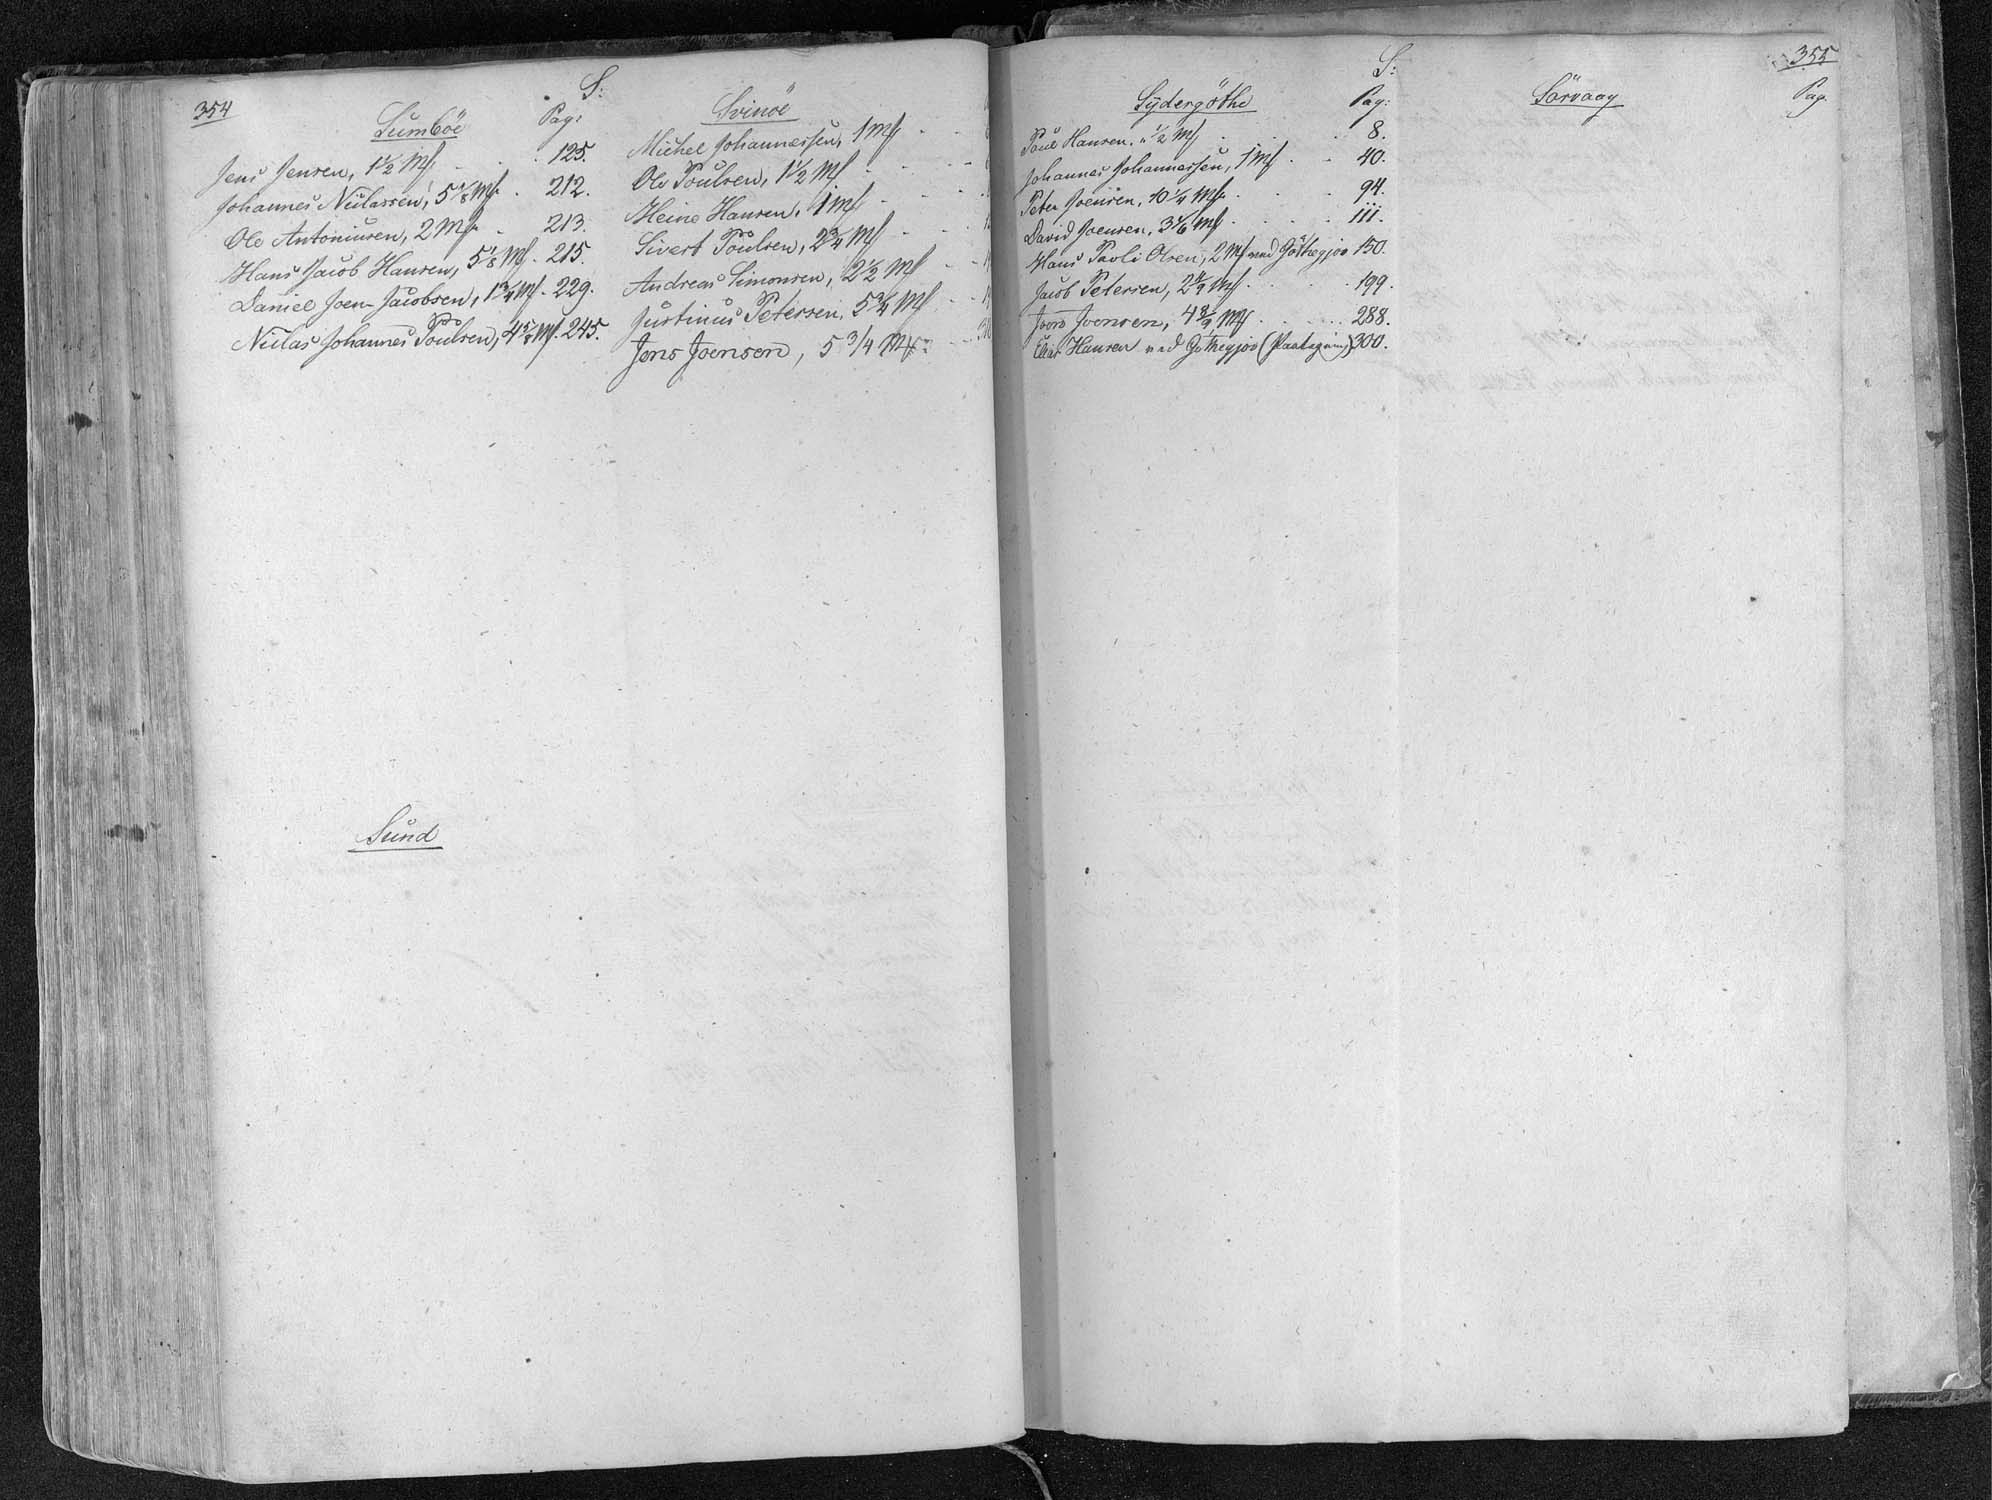 354
S:
Sumböe Pag:
Jens Jensen, 1 1/2 Mk . . . 125.
Johannes Niclassen, 5 7/8 Mk . 212.
Ole Antoniusen, 2 Mk . . 213.
Hans Jacob Hansen, 5 1/8 Mk . 215.
Daniel Joen-Jacobsen, 1 3/4 Mk . 229.
Niclas Johannes Poulsen, 4 5/8 Mk . 245.
Sund
Svinöe
Michel Johannessen, 1 Mk
Ole Poulsen, 1 1/2 Mk
Heine Hansen, 1 Mk
Sivert Poulsen, 2 3/4 Mk
Andreas Simonsen, 2 1/2 Mk
Justinus Petersen, 5 3/4 Mk
Jens Joensen, 5 3/4 Mk
355
S:
Sydergöthe Pag:
Poul Hansen, " 1/2 Mk . . . 8.
Johannes Johannessen, 1 Mk . . 40.
Peter Joensen, 10 1/4 Mk . . . 94.
David Joensen, 3 1/6 Mk . . . . 111.
Hans Pauli Olsen, 2 Mk ved Göthegjov 150.
Jacob Petersen, 2 4/9 Mk . . . . 199.
Joen Joensen, 4 8/9 Mk . . . . 288.
Elias Hansen ved Göthegjov (Paategning) 300.
Sörvaag Pag.